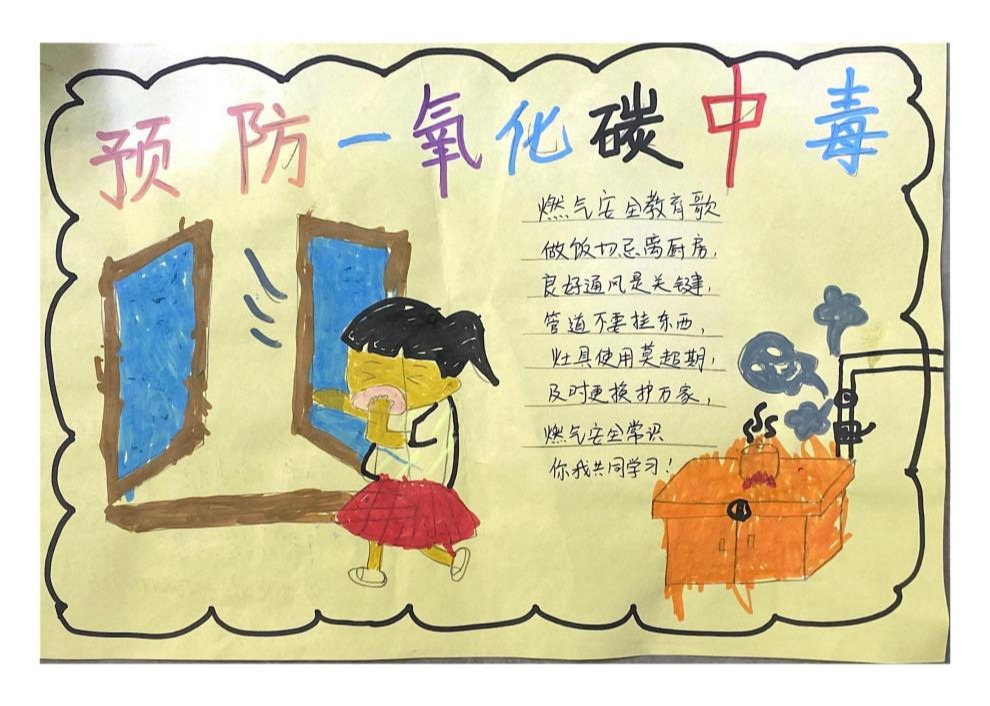 预防一氧化碳中毒
燃气安全教育歌
做饭切忌离厨房，
良好通风是关键，
管道不要挂东西，
灶具使用莫超期，
及时更换护万家，
燃气安全常识
你我共同学习！